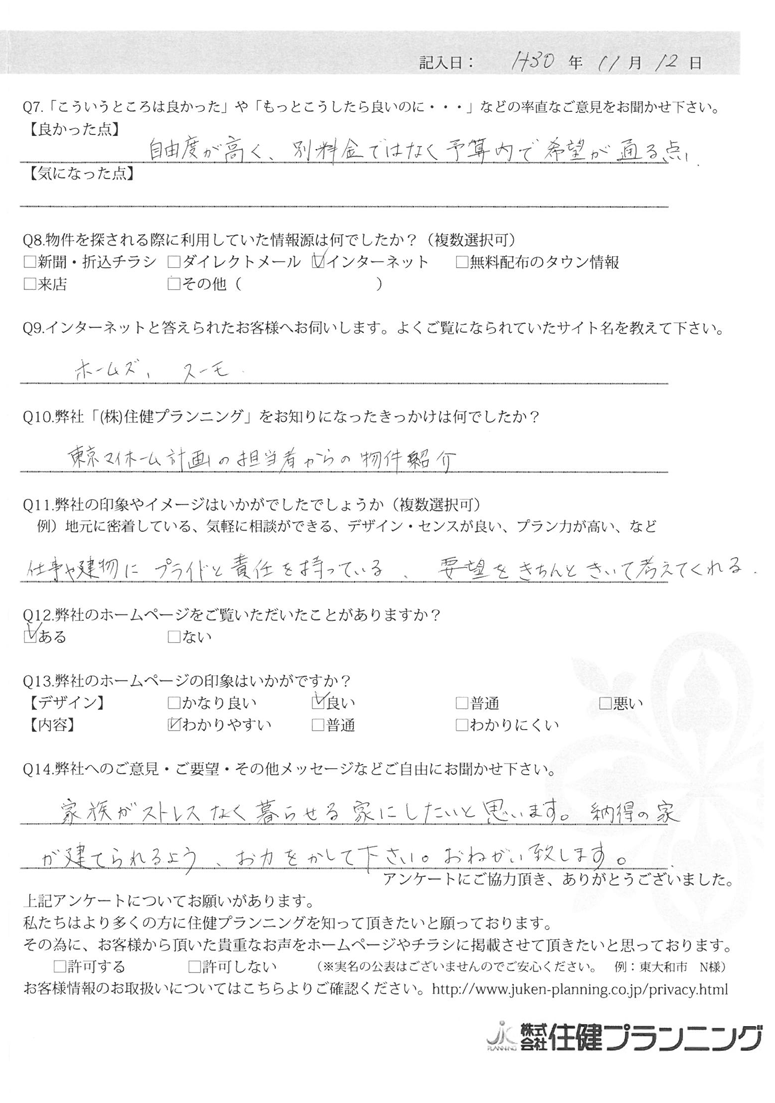 記入日： H30 年 11 月 12 日
Q7.「こういうところは良かった」や「もっとこうしたら良いのに・・・」などの率直なご意見をお聞かせ下さい。
【良かった点】
自由度が高く、別料金ではなく予算内で希望が通る点。
【気になった点】
Q8.物件を探される際に利用していた情報源は何でしたか？（複数選択可）
□新聞・折込チラシ □ダイレクトメール ☑インターネット □無料配布のタウン情報
□来店 □その他（ ）
Q9.インターネットと答えられたお客様へお伺いします。よくご覧になられていたサイト名を教えて下さい。
ホームズ、スーモ
Q10.弊社「(株)住健プランニング」をお知りになったきっかけは何でしたか？
東京マイホーム計画の担当者からの物件紹介
Q11.弊社の印象やイメージはいかがでしたでしょうか（複数選択可）
例）地元に密着している、気軽に相談ができる、デザイン・センスが良い、プラン力が高い、など
仕事や建物にプライドと責任を持っている、要望をきちんときいて考えてくれる。
Q12.弊社のホームページをご覧いただいたことがありますか？
☑ある □ない
Q13.弊社のホームページの印象はいかがですか？
【デザイン】 □かなり良い ☑良い □普通 □悪い
【内容】 ☑わかりやすい □普通 □わかりにくい
Q14.弊社へのご意見・ご要望・その他メッセージなどご自由にお聞かせ下さい。
家族がストレスなく暮らせる家にしたいと思います。納得の家
が建てられるよう、お力をかして下さい。おねがい致します。
アンケートにご協力頂き、ありがとうございました。
上記アンケートについてお願いがあります。
私たちはより多くの方に住健プランニングを知って頂きたいと願っております。
その為に、お客様から頂いた貴重なお声をホームページやチラシに掲載させて頂きたいと思っております。
□許可する □許可しない （※実名の公表はございませんのでご安心ください。 例：東大和市 N様）
お客様情報のお取扱いについてはこちらよりご確認ください。http://www.juken-planning.co.jp/privacy.html
JK PLANNING 株式会社住健プランニング